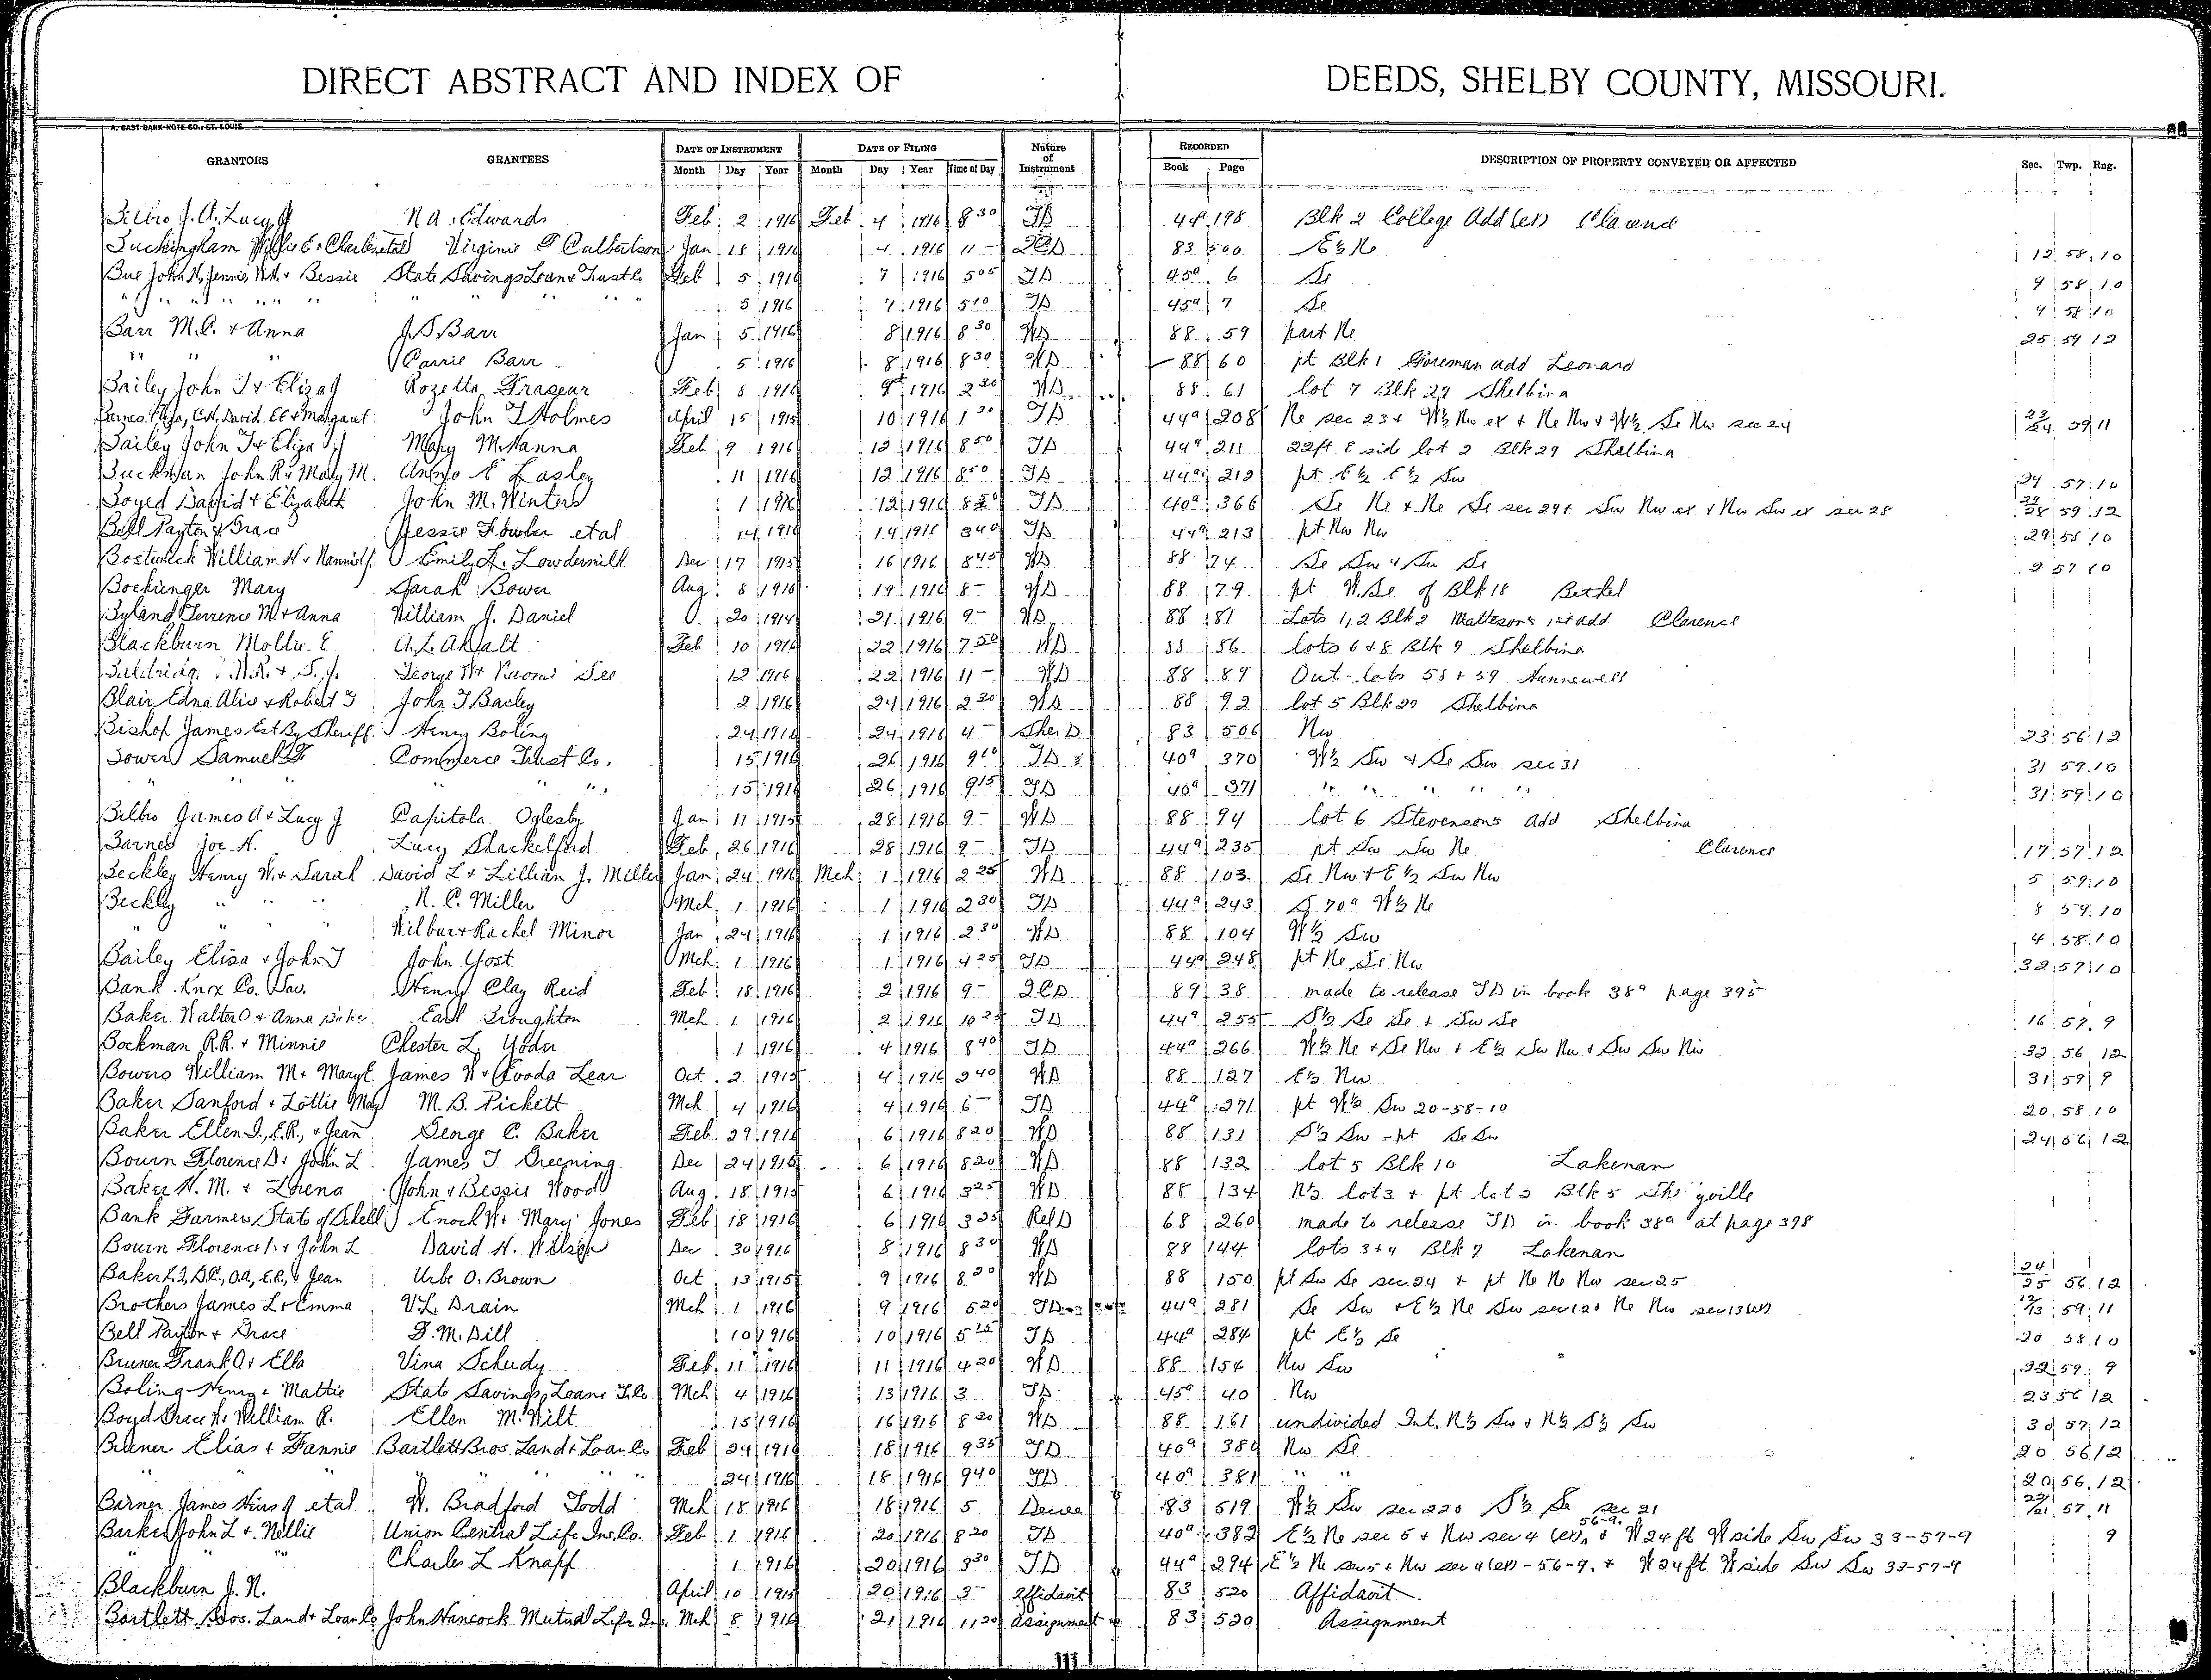 DIRECT ABSTRACT AND INDEX OF DEEDS, SHELBY COUNTY, MISSOURI.
A. GAST BANK-NOTE CO., ST. LOUIS.
GRANTORS GRANTEES DATE OF INSTRUMENT DATE OF FILING Nature of Instrument RECORDED DESCRIPTION OF PROPERTY CONVEYED OR AFFECTED Sec. Twp. Rng.
Month Day Year Month Day Year Time of Day Book Page
Bilbro J. A. Lucy J N A. Edwards Feb 2 1916 Feb 4 1916 8 30 TD 44a 198 Blk 2 College Add (ex) Clarence
Buckingham Willis E + Charlene etal Virginia Culbertson Jan 18 1916 4 1916 11 - QCD 83 500 E½ Ne 12 58 10
Bue John H, Jennie, W.H. + Bessie State Savings Loan + Trust Co Feb 5 1916 7 1916 5 05 TD 45a 6 Se 9 58 10
" " " " " " " " " " 5 1916 7 1916 5 10 TD 45a 7 Se 9 58 10
Barr M.C. + Anna J S Barr Jan 5 1916 8 1916 8 30 WD 88 59 part Ne 25 59 12
" " " Carrie Barr 5 1916 8 1916 8 30 WD 88 60 pt Blk 1 Foreman add Leonard
Bailey John T + Eliza J Rozetta Frazeur Feb 8 1916 9 1916 2 30 WD 88 61 lot 7 Blk 29 Shelbina
Barnes Eliza, C.H, David, EE + Margaret John T Holmes April 15 1915 10 1916 1 30 TD 44a 208 Ne sec 23 + W½ Nw ex + Ne Nw + W½ Se Nw sec 24 23/24 59 11
Bailey John T + Eliza J Mary M. Hanna Feb 9 1916 12 1916 8 50 TD 44a 211 22ft E side lot 2 Blk 29 Shelbina
Buckman John R + Mary M. Annie E Lasley 11 1916 12 1916 8 50 TD 44a 212 pt E½ E½ Sw 34 57 10
Boyed David + Elizabeth John M. Winters 1 1916 12 1916 8 50 TD 40a 366 Se Ne + Ne Se sec 29 + Sw Nw ex + Nw Sw ex sec 28 29/28 59 12
Bell Payton + Grace Jessie Fowler etal 14 1916 14 1916 3 40 TD 44a 213 pt Nw Nw 29 58 10
Bostwick William H + Nannie J. Emily A. Lowdermilk Dec 17 1915 16 1916 8 45 WD 88 74 Se Sw + Sw Se 2 57 10
Bockinger Mary Sarah Bower Aug 8 1916 19 1916 8 - WD 88 79 pt W. Se of Blk 18 Bethel
Byland Terrence M + Anna William J. Daniel 20 1914 21 1916 9 - WD 88 81 Lots 1, 2 Blk 2 Mattesons 1st add Clarence
Blackburn Mollie E A. L. Ahalt Feb 10 1916 22 1916 7 50 WD 88 86 lots 6 + 8 Blk 9 Shelbina
George W + Naomi See 12 1916 22 1916 11 - WD 88 89 Out-lots 58 + 59 Hunnewell
Blair Edna Alice + Robert T John T Bailey 2 1916 24 1916 2 30 WD 88 92 lot 5 Blk 29 Shelbina
Bishop James Est By Sheriff Henry Boling 24 1916 24 1916 4 - Sher D 83 506 Nw 23 56 12
Bower Samuel F Commerce Trust Co. 15 1916 26 1916 9 10 TD 40a 370 W½ Sw + Se Sw sec 31 31 59 10
" " " " " 15 1916 26 1916 9 15 TD 40a 371 " " " " " 31 59 10
Bilbro James A + Lucy J Capitola Oglesby Jan 11 1915 28 1916 9 - WD 88 94 lot 6 Stevensons add Shelbina
Barnes Joe H. Lucy Shackelford Feb 26 1916 28 1916 9 - TD 44a 235 pt Sw Sw Ne Clarence 17 57 12
Beckley Henry W. + Sarah David L + Lillian J. Miller Jan 24 1916 Mch 1 1916 2 25 WD 88 103 Se Nw + E½ Sw Nw 5 59 10
Beckley " " " N. C. Miller Mch 1 1916 1 1916 2 30 TD 44a 243 S 70a W½ Ne 8 59 10
" " " Wilbur + Rachel Minor Jan 24 1916 1 1916 2 30 WD 88 104 W½ Sw 4 58 10
Bailey Eliza + John T John Yost Mch 1 1916 1 1916 4 25 TD 44a 248 pt Ne Se Nw 32 57 10
Bank Knox Co. Sav. Henry Clay Reid Feb 18 1916 2 1916 9 - QCD 89 38 made to release TD in book 38a page 395
Baker Walter O + Anna Earl Broughton Mch 1 1916 2 1916 10 25 TD 44a 255 S½ Se Se + Sw Se 16 57 9
Bockman R.R. + Minnie Chester L. Yoder 1 1916 4 1916 8 40 TD 44a 266 W½ Ne + Se Nw + E½ Sw Nw + Sw Sw Nw 32 56 12
Bowers William M + Mary E. James W + Rhoda Lear Oct 2 1915 4 1916 2 40 WD 88 127 E½ Nw 31 59 9
Baker Sanford + Lottie May M. B. Pickett Mch 4 1916 4 1916 6 - TD 44a 271 pt W½ Sw 20-58-10 20 58 10
Baker Ellen I., E.R., + Jean George C. Baker Feb 29 1916 6 1916 8 20 WD 88 131 S½ Sw - pt Se Sw 24 56 12
Bourn Florence D + John L. James T Greening Dec 24 1915 6 1916 8 20 WD 88 132 lot 5 Blk 10 Lakenan
Baker H. M. + Lorena John + Bessie Wood Aug 18 1915 6 1916 3 25 WD 88 134 N½ lot 3 + pt lot 2 Blk 5 Shelbyville
Bank Farmers State of Shelby Enoch W + Mary Jones Feb 18 1916 6 1916 3 25 Rel D 68 260 made to release TD in book 38a at page 398
Bourn Florence D + John L David H. Wilson Dec 30 1916 8 1916 8 30 WD 88 144 lots 3 + 4 Blk 7 Lakenan
Baker E.I, D.C., O.A, E.R, + Jean Urbe O. Brown Oct 13 1915 9 1916 8 20 WD 88 150 pt Sw Se sec 24 + pt Ne Ne Nw sec 25 24/25 56 12
Brothers James L + Emma V L. Drain Mch 1 1916 9 1916 5 20 TD 44a 281 Se Sw + E½ Ne Sw sec 12 + Ne Nw sec 13 (ex) 12/13 59 11
Bell Payton + Grace F. M. Dill 10 1916 10 1916 5 15 TD 44a 284 pt E½ Se 20 58 10
Bruner Frank A + Ella Vina Schudy Feb 11 1916 11 1916 4 20 WD 88 154 Nw Sw 32 59 9
Boling Henry + Mattie State Savings, Loan + T. Co Mch 4 1916 13 1916 3 TD 45a 40 Nw 23 56 12
Boyd Grace H + William R. Ellen M. Wilt 15 1916 16 1916 8 20 WD 88 161 undivided Int. N½ Sw + N½ S½ Sw 30 57 12
Bruner Elias + Fannie Bartlett Bros. Land + Loan Co Feb 24 1916 18 1916 9 35 TD 40a 380 Nw Se 20 56 12
" " " " " 24 1916 18 1916 9 40 TD 40a 381 " " 20 56 12
Birner James Heirs of etal W. Bradford Todd Mch 18 1916 18 1916 5 Decree 83 519 W½ Sw sec 22 S½ Se sec 21 22/21 57 11
Barker John L + Nellie Union Central Life Ins. Co. Feb 1 1916 20 1916 8 20 TD 40a 382 E½ Ne sec 5 + Nw sec 4 (ex) 56-9. + W 24 ft W side Sw Sw 33-57-9 9
" " " Charles L Knapp 1 1916 20 1916 3 30 TD 44a 294 E½ Ne sec 5 + Nw sec 4 (ex) - 56-9. + W 24 ft W side Sw Sw 33-57-9
Blackburn J. N. April 10 1915 20 1916 3 - Affidavit 83 520 Affidavit
Bartlett Bros. Land + Loan Co John Hancock Mutual Life Ins. Mch 8 1916 21 1916 11 20 Assignment 83 520 Assignment
111